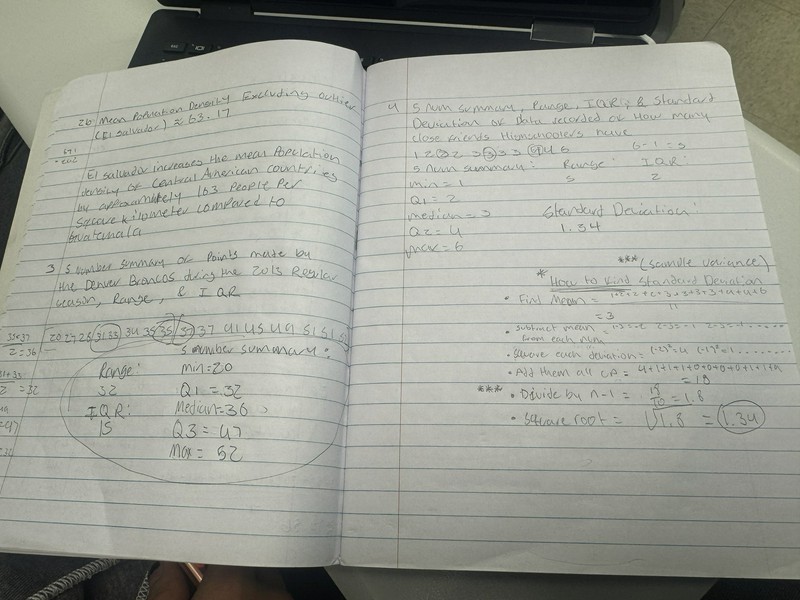 2b Mean Population Density Excluding outlier
(El salvador) ≈ 63.17
El salvador increases the mean Population
density of Central American countries
by approximately 163 People Per
Square kilometer compared to
Guatemala
3 5 number summary of Points made by
the Denver Broncos during the 2013 Regular
season, Range, & IQR
35+37
2=36
20 27 28 31 33 34 35 35 37 37 41 45 49 51 51 52
5 number summary:
Range: min=20
32 Q1=32
IQR: Median=36
15 Q3=47
Max=52
4 5 num summary, Range, IQR, & Standard
Deviation of data recorded of How many
close friends Highschoolers have
1 2 2 2 3 3 3 3 4 4 6 6-1=5
5 num summary: Range: IQR:
min=1 5 2
Q1=2
median=3 Standard Deviation:
Q2=4 1.34
max=6
*** (sample variance)
* How to find Standard Deviation
• Find Mean = 1+2+2+2+3+3+3+3+4+4+6
11
= 3
• subtract mean = 1-3=-2 2-3=-1 2-3=-1 .......
from each num
• Square each deviation = (-2)²=4 (-1)²=1 ........
• Add them all up = 4+1+1+1+0+0+0+0+1+1+9
= 18
*** • Divide by n-1 = 18/10 = 1.8
• Square root = √1.8 = 1.34